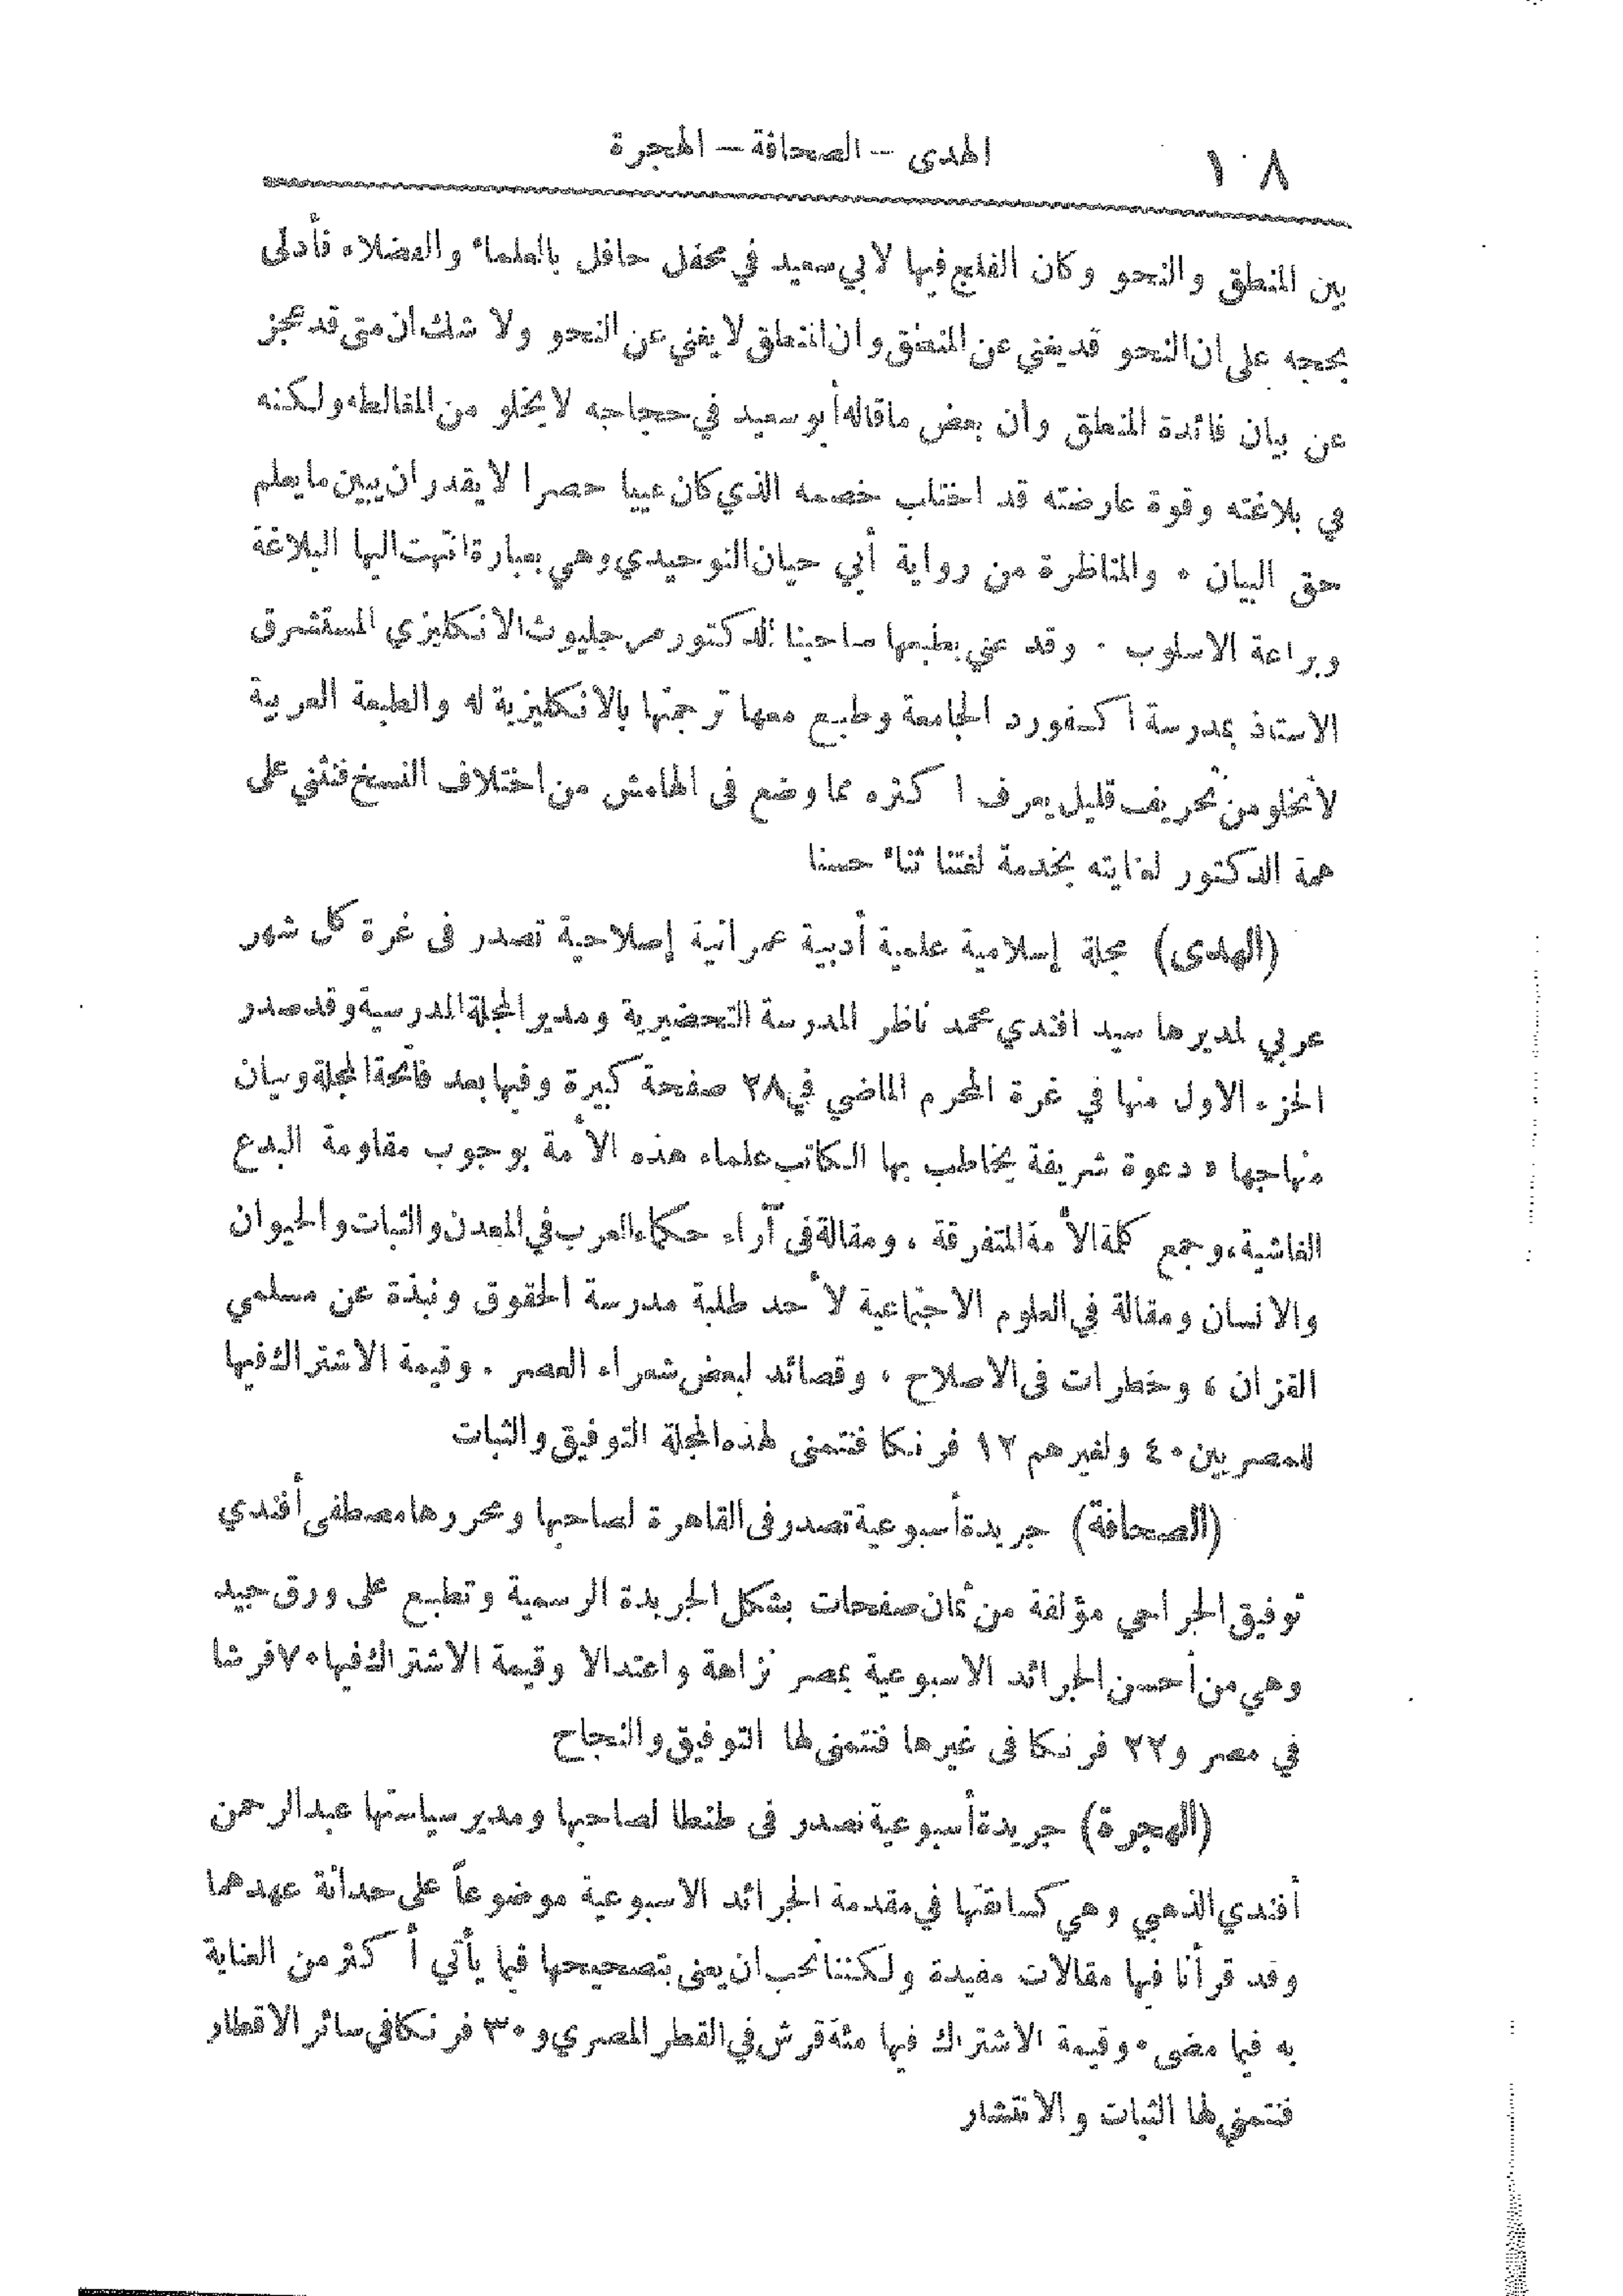 ١٠٨ الهدى — الصحافة — الهجرة
بين المنطق والنحو وكان الفلج فيها لابي سعيد في محفل حافل بالعلماء والفضلاء فأدلى
بحججه على ان النحو قد يغني عن المنطق وان المنطق لا يغني عن النحو ولا شك ان متى قد عجز
عن بيان فائدة المنطق وان بعض ما قاله أبو سعيد في حجاجه لا يخلو من المغالطه ولكنه
في بلاغته وقوة عارضته قد اختلب خصمه الذي كان عييا حصرا لا يقدر ان يبين ما يعلم
حق البيان . والمناظرة من رواية أبي حيان التوحيدي وهي بعبارة انتهت اليها البلاغة
وبراعة الاسلوب . وقد عني بطبعها صاحبنا الدكتور مرجليوث الانكليزي المستشرق
الاستاذ بمدرسة اكسفورد الجامعة وطبع معها ترجمتها بالانكليزية له والطبعة العربية
لا تخلو من تحريف قليل يعرف اكثره مما وضع فى الهامش من اختلاف النسخ فنثني على
همة الدكتور لعنايته بخدمة لغتنا ثناء حسنا
(الهدى) مجلة إسلامية علمية أدبية عمرانية إصلاحية تصدر فى غرة كل شهر
عربي لمديرها سيد افندي محمد ناظر المدرسة التحضيرية ومدير المجلة المدرسية وقد صدر
الجزء الاول منها في غرة المحرم الماضي في ٢٨ صفحة كبيرة وفيها بعد فاتحة المجلة وبيان
منهاجها « دعوة شريفة يخاطب بها الكاتب علماء هذه الأمة بوجوب مقاومة البدع
الفاشية ، وجمع كلمة الأمة المتفرقة ، ومقالة فى آراء حكماء العرب في المعدن والنبات والحيوان
والانسان ومقالة في العلوم الاجتماعية لأحد طلبة مدرسة الحقوق ونبذة عن مسلمي
القزان ، وخطرات فى الاصلاح ، وقصائد لبعض شعراء العصر . وقيمة الاشتراك فيها
للمصريين ٤٠ ولغيرهم ١٢ فرنكا فنتمنى لهذه المجلة التوفيق والثبات
(الصحافة) جريدة أسبوعية تصدر فى القاهرة لصاحبها ومحررها مصطفى أفندي
توفيق الجراحي مؤلفة من ثمان صفحات بشكل الجريدة الرسمية وتطبع على ورق جيد
وهي من أحسن الجرائد الاسبوعية بمصر نزاهة واعتدالا وقيمة الاشتراك فيها ٧٠ قرشا
في مصر و٢٢ فرنكا فى غيرها فنتمنى لها التوفيق والنجاح
(الهجرة) جريدة أسبوعية تصدر فى طنطا لصاحبها ومدير سياستها عبد الرحمن
أفندي الذهبي وهي كسابقتها في مقدمة الجرائد الاسبوعية موضوعاً على حداثة عهدهما
وقد قرأنا فيها مقالات مفيدة ولكننا نحب ان يعنى بتصحيحها فيما يأتي أكثر من العناية
به فيما مضى . وقيمة الاشتراك فيها مئة قرش في القطر المصري و ٣٠ فرنكا في سائر الاقطار
فنتمنى لها الثبات والانتشار